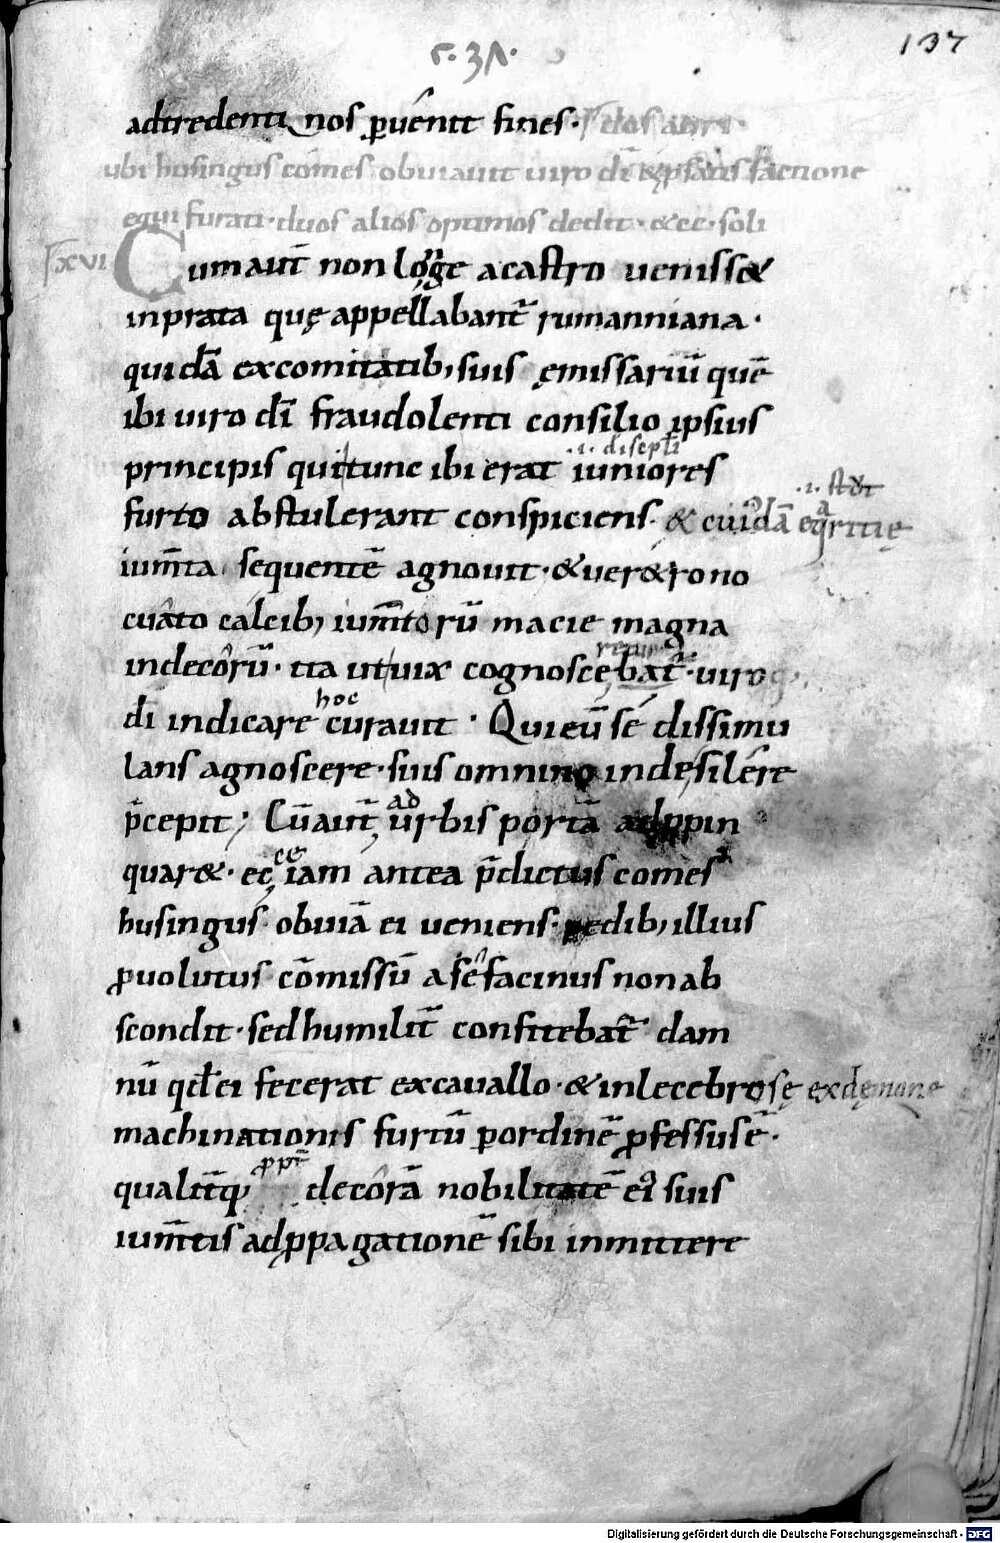 137
adtredenti nos puenit fines· 
ubi husingus comes obviavit viro dī & 
equi furati· duos alios optimos dedit· &cc· soli
XXVI Cum aut̄ non longe a castro veniss&
in prata quę appellabant̄ rumanniana·
quidā ex comitatib; suis ęmissariū quē
ibi viro dī fraudolenti consilio ipsius
principis qui tunc ibi erat iuniores ·i· discipl̄i
furto abstulerant conspiciens· & cuidā
ium̄ta sequentē agnovit· & ver&rono
cuāto calcib; ium̄torū macie magna
indecorū· ita ut vix cognoscebat̄· viro
dī indicare hoc curavit· Qui eū sē dissimu
lans agnoscere· suis omnino inde silere
p̄cepit; Cū aut̄ ad urbis portā adppin
quar&· ecce iam antea p̄dictus comes
husingus obviā ei veniens· pedib; illius
pvolutus cōmissū a sē facinus non ab
scondit· sed humilit̄ confitebat̄ dam
nū qđ ei fecerat ex cavallo· & inlecebrosę ex dęmone
machinationis furtū p ordinē pfessus ē·
qualit̄q; ppt̄ decorā nobilitatē ei suis
ium̄tis ad ppagationē sibi inmittere
Digitalisierung gefördert durch die Deutsche Forschungsgemeinschaft - DFG